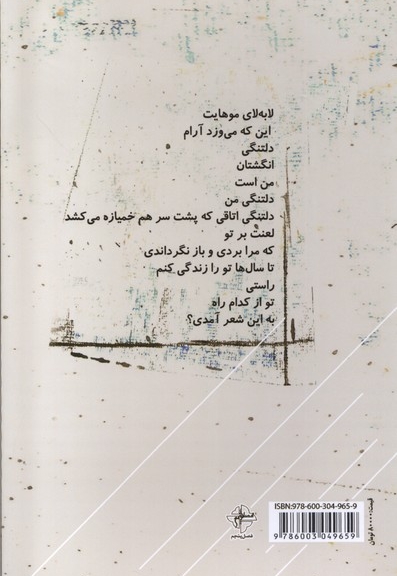 لابه‌لای موهایت
این که می‌وزد آرام
دلتنگی
انگشتان
من است
دلتنگی من
دلتنگی اتاقی که پشت سر هم خمیازه می‌کشد
لعنت بر تو
که مرا بردی و باز نگرداندی
تا سال‌ها تو را زندگی کنم
راستی
تو از کدام راه
به این شعر آمدی؟
ISBN:978-600-304-965-9
9 786003 049659
فصل پنجم
قیمت: ۸۰۰۰۰ تومان